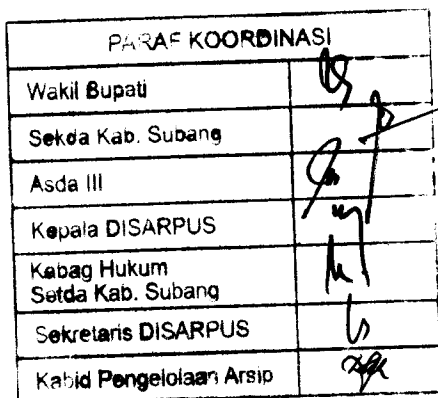 PARAF KOORDINASI
Wakil Bupati
Sekda Kab. Subang
Asda III
Kepala DISARPUS
Kabag Hukum
Setda Kab. Subang
Sekretaris DISARPUS
Kabid Pengelolaan Arsip